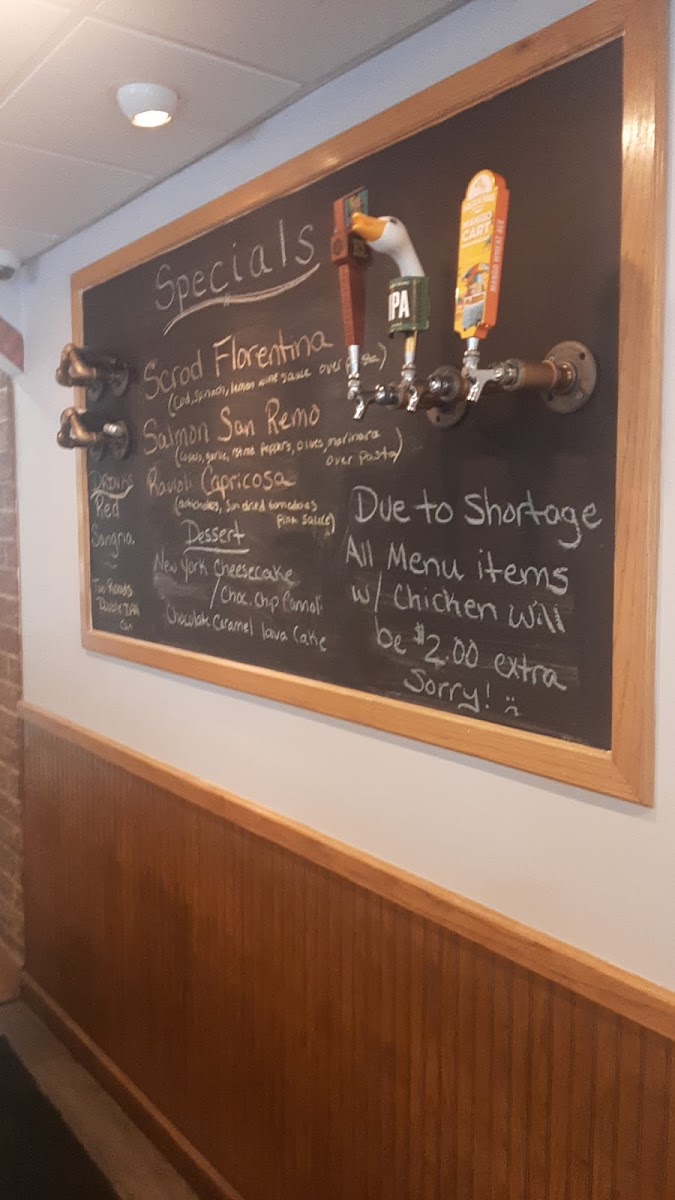 Specials
Scrod Florentina
(Cod, spinach, lemon wine sauce over
Salmon San Remo
(capers, garlic, peppers, olives, marinara
over pasta)
Ravioli Capricosa
(artichokes, sun dried tomatoes
pink sauce)
Dessert
New York Cheesecake
/ Choc. Chip Cannoli
Chocolate Caramel lava Cake
DRINKS
Red
Sangria
Two Roads
Double IPA
Can
Due to Shortage
All Menu items
w/ Chicken will
be $2.00 extra
Sorry! :(
IPA
MANGO
CART
MANGO WHEAT ALE